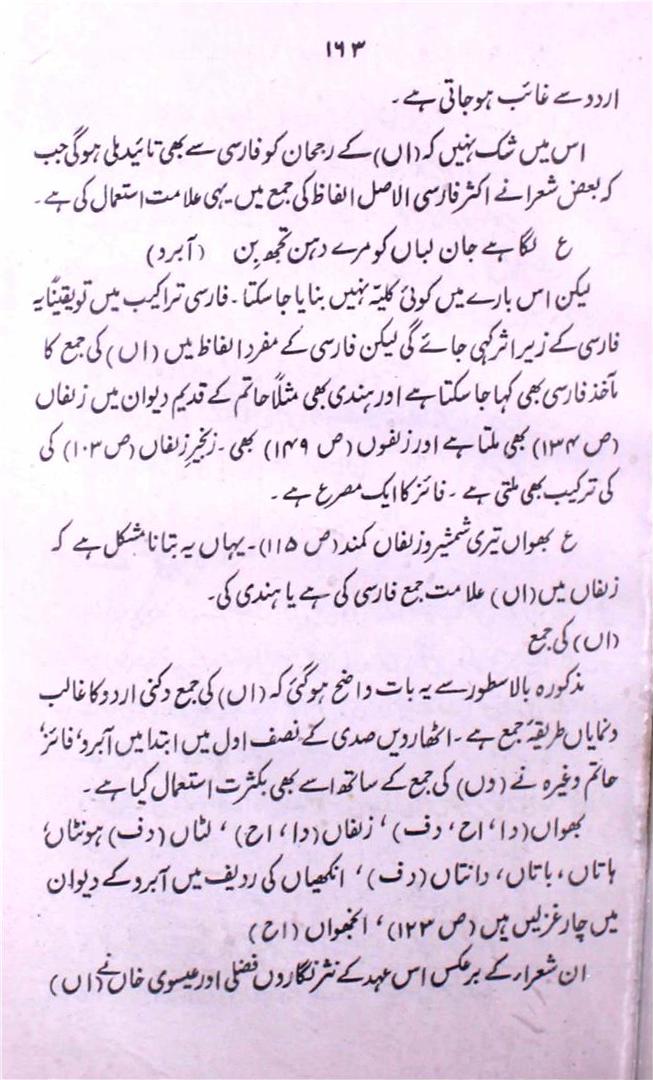 ۱۶۳
اردو سے غائب ہو جاتی ہے۔
اس میں شک نہیں کہ (اں) کے رجحان کو فارسی سے بھی تائید ملی ہو گی جب
کہ بعض شعرا نے اکثر فارسی الاصل الفاظ کی جمع میں۔ یہی علامت استعمال کی ہے۔
ع لگا ہے جان لباں کو مرے دہن تجھ بِن (آبرو)
لیکن اس بارے میں کوئی کلیّہ نہیں بنایا جا سکتا۔ فارسی تراکیب میں تو یقیناً یہ
فارسی کے زیر اثر کہی جائے گی لیکن فارسی کے مفرد الفاظ میں (اں) کی جمع کا
مآخذ فارسی بھی کہا جا سکتا ہے اور ہندی بھی مثلاً حاتم کے قدیم دیوان میں زلفاں
(ص ۱۳۴) بھی ملتا ہے اور زلفوں (ص ۱۴۹) بھی۔ زنجیرِ زلفاں (ص ۱۰۳) کی
کی ترکیب بھی ملتی ہے۔ فائز کا ایک مصرع ہے۔
ع بھواں تیری شمشیر و زلفاں کمند (ص ۱۱۵)۔ یہاں یہ بتانا مشکل ہے کہ
زلفاں میں (اں) علامت جمع فارسی کی ہے یا ہندی کی۔
(اں) کی جمع
مذکورہ بالا سطور سے یہ بات واضح ہو گئی کہ (اں) کی جمع دکنی اردو کا غالب
و نمایاں طریقۂ جمع ہے۔ اٹھارویں صدی کے نصف اول میں ابتدا میں آبرو، فائز،
حاتم وغیرہ نے (وں) کی جمع کے ساتھ اسے بھی بکثرت استعمال کیا ہے۔
بھواں (دا، اح، دف)، زلفاں (دا، اح)، لٹاں (دف) ہونٹاں،
ہاتاں، باتاں، دانتاں (دف)، انکھیاں کی ردیف میں آبرو کے دیوان
میں چار غزلیں ہیں (ص ۱۲۳)، انجھواں (اح)
ان شعراء کے برعکس اس عہد کے نثر نگاروں فضلی اور عیسوی خاں نے (اں)